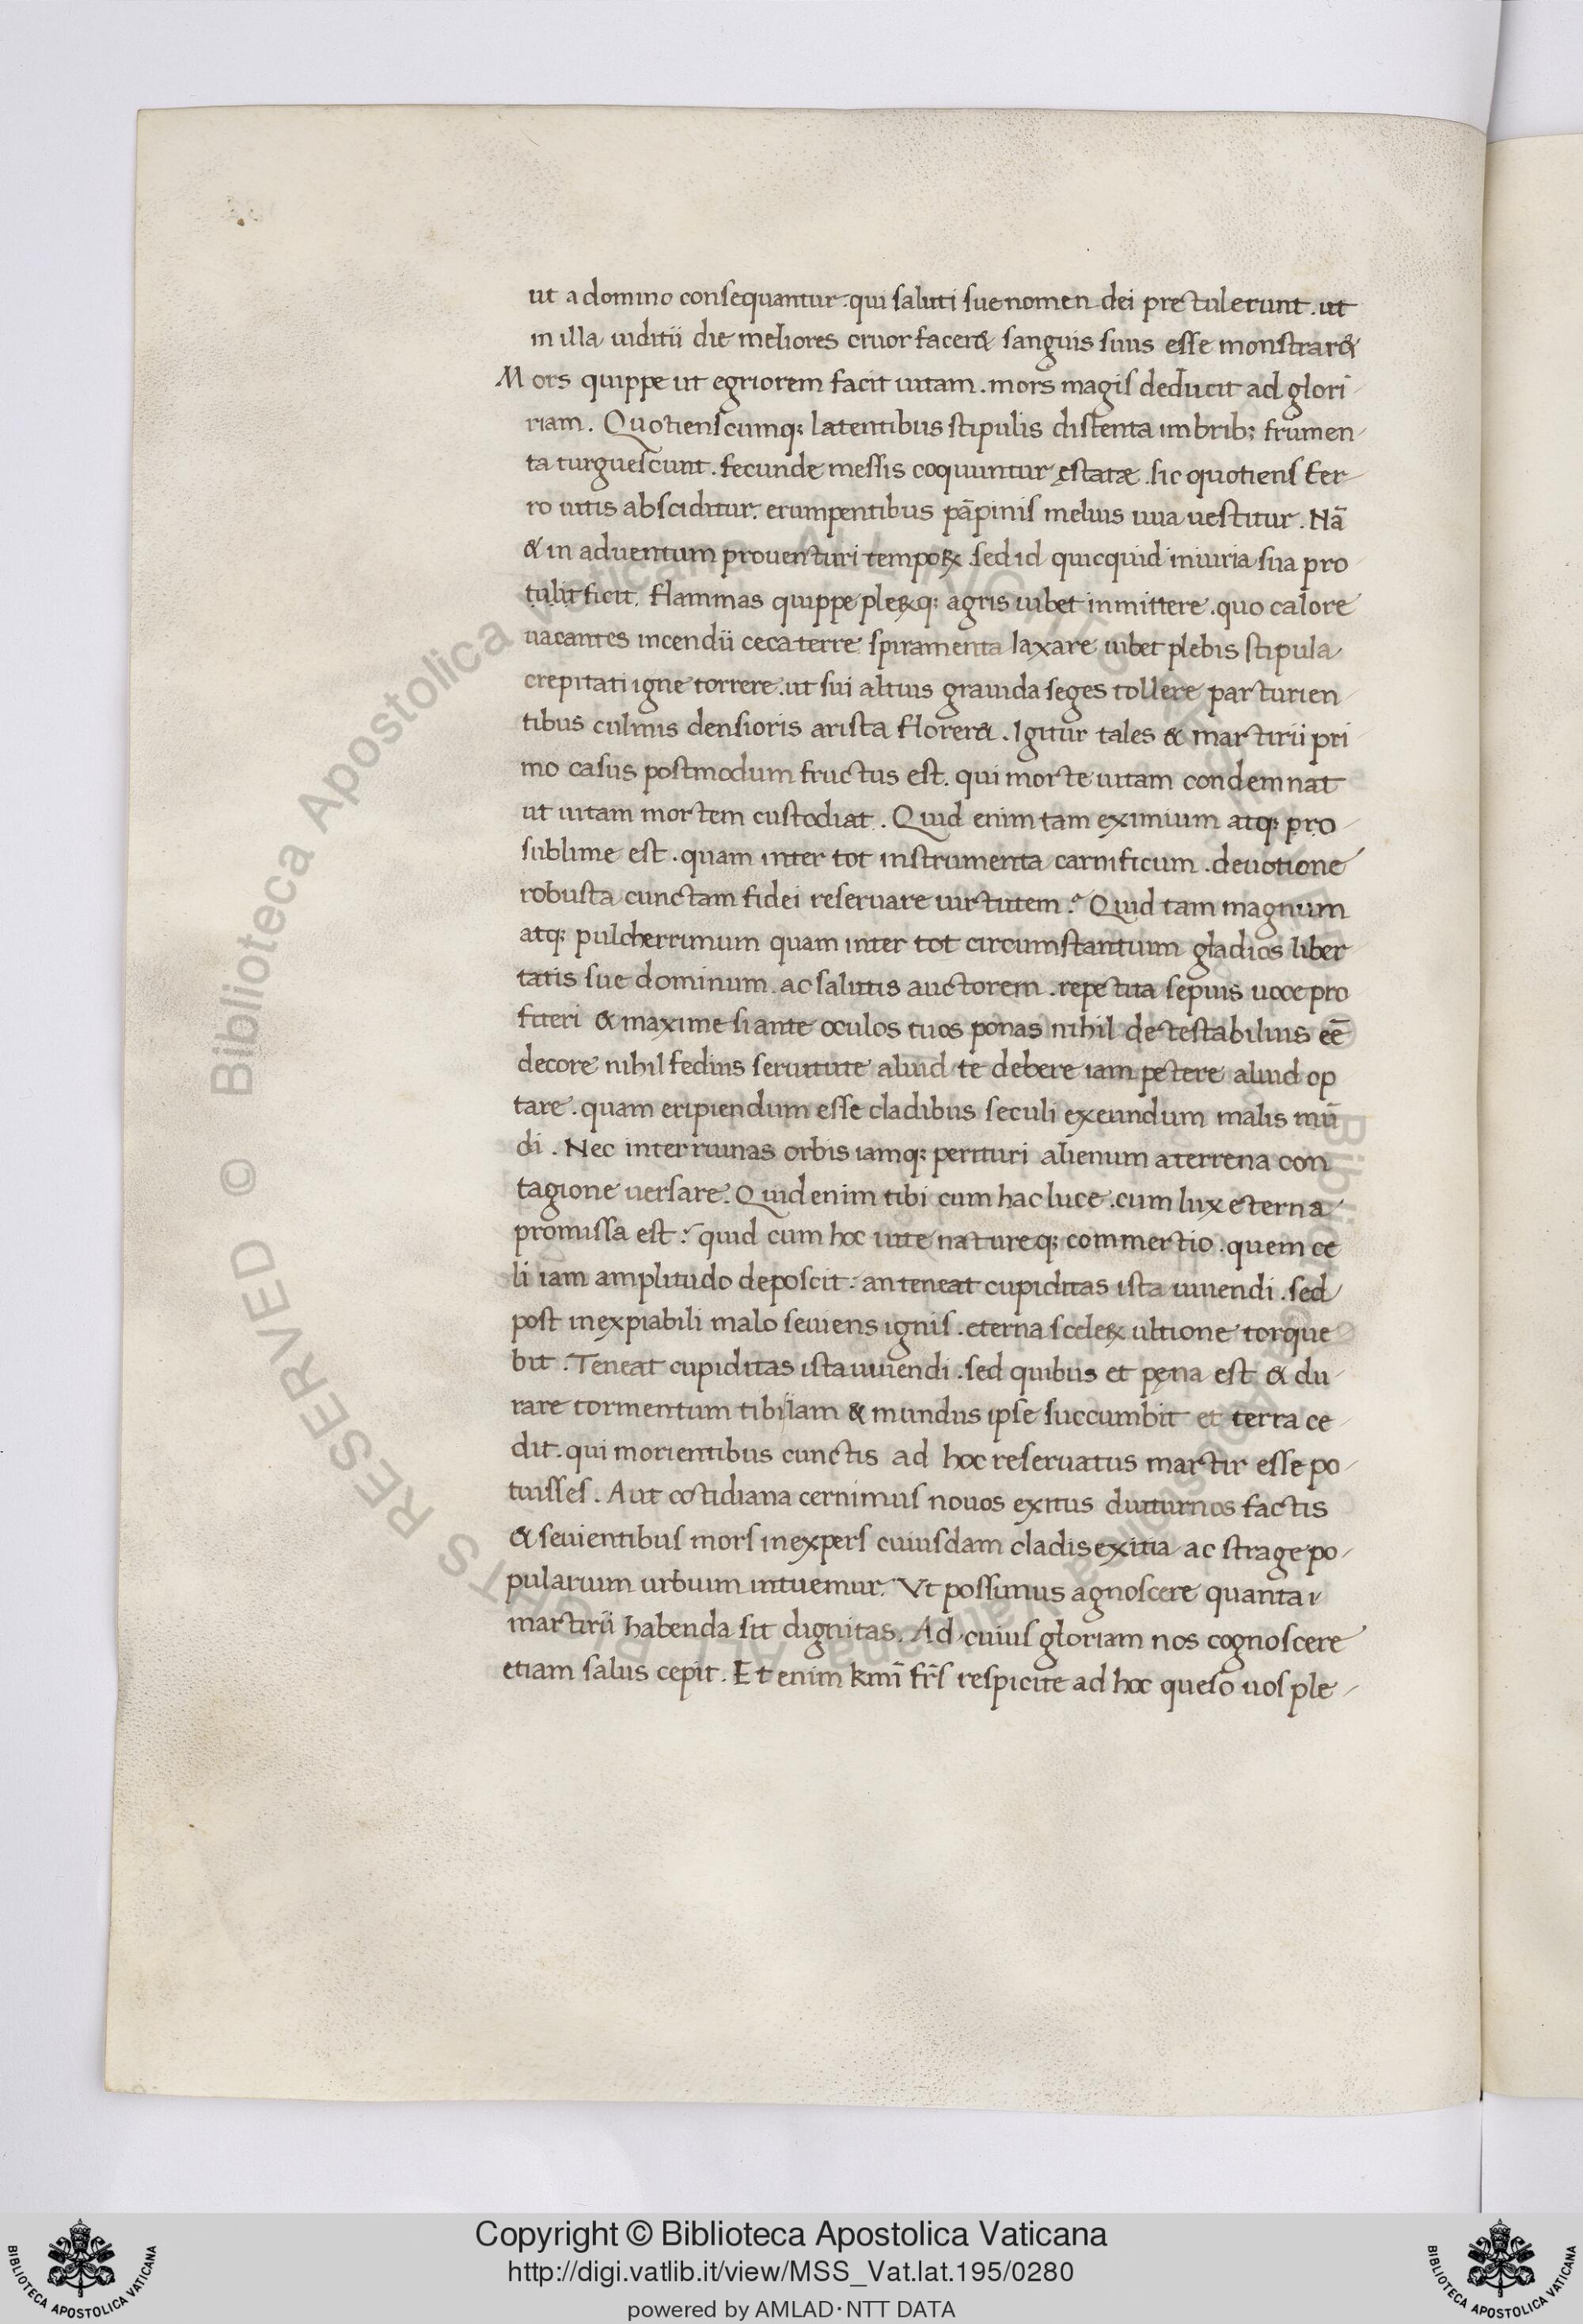 ut a domino consequantur. qui saluti sue nomen dei pretulerunt. ut
in illa iuditii die meliores cruor facer& sanguis suus esse monstrar&
Mors quippe ut egriorem facit uitam. mors magis deducit ad glori
riam. Quotienscumq; latentibus stipulis distenta imbrib; frumen
ta turguescunt. fecunde messis coquuntur ęstatæ. sic quotiens fer
ro uitis absciditur. erumpentibus pāpinis melius uua uestitur. Nā
& in aduentum prouenturi tempoꝝ. sed id quicquid iniuria sua pro
tulit ficit. flammas quippe pleꝝq; agris iubet inmittere. quo calore
uacantes incendii ceca terre spiramenta laxare iubet plebis stipula
crepitati igne torrere. ut sui altius grauida seges tollere parturien
tibus culmis densioris arista florer&. Igitur tales & martirii pri
mo casus postmodum fructus est. qui morte uitam condemnat
ut uitam mortem custodiat. Quid enim tam eximium atq; pro
sublime est. quam inter tot instrumenta carnificum. deuotione
robusta cunctam fidei reseruare uirtutem? Quid tam magnum
atq; pulcherrimum quam inter tot circumstantium gladios liber
tatis sue dominum. ac salutis auctorem. repetita sepius uoce pro
fiteri & maxime si ante oculos tuos ponas nihil detestabilius eē
decore nihil fedius seruitute aliud te debere iam petere aliud op
tare. quam eripiendum esse cladibus seculi exeundum malis mū
di. Nec inter ruinas orbis iamq; perituri alienum a terrena con
tagione uersare. Quid enim tibi cum hac luce. cum lux eterna
promissa est? quid cum hoc uite natureq; commertio. quem ce
li iam amplitudo deposcit. an teneat cupiditas ista uiuendi. sed
post inexpiabili malo seuiens ignis. eterna sceleꝝ ultione torque
bit. Teneat cupiditas ista uiuendi. sed quibus et pęna est & du
rare tormentum tibi iam & mundus ipse succumbit et terra ce
dit. qui morientibus cunctis ad hoc reseruatus martir esse po
tuisses. Aut cotidiana cernimus nouos exitus diuturnos factis
& seuientibus mors inexpers cuiusdam cladis exitia ac strage po
pularium urbium intuemur. Ut possimus agnoscere quanta
martirii habenda sit dignitas. Ad cuius gloriam nos cognoscere
etiam salus cepit. Et enim kmī frīs respicite ad hoc queso uos ple
Copyright © Biblioteca Apostolica Vaticana
http://digi.vatlib.it/view/MSS_Vat.lat.195/0280
powered by AMLAD·NTT DATA
BIBLIOTECA APOSTOLICA VATICANA
BIBLIOTECA APOSTOLICA VATICANA